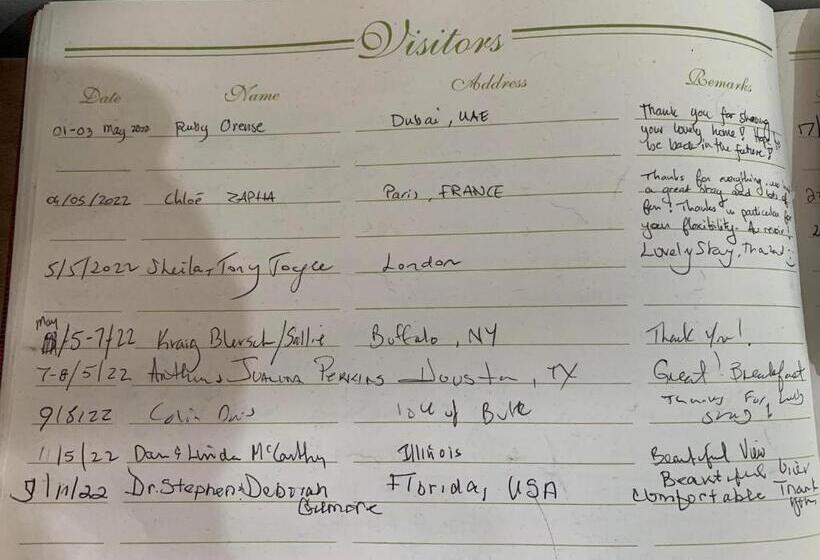 Visitors
Date Name Address Remarks
01-03 May 2022 Ruby Orense Dubai, UAE Thank you for sharing
your lovely home! Hope to
be back in the future!
04/05/2022 Chloé ZAPHA Paris, FRANCE Thanks for everything,
a great stay and lots of
fun! Thanks in particular for
your flexibility. Au revoir!
5/5/2022 Sheila, Tony Joyce London Lovely Stay, Thanks
May /5-7/22 Kraig Blersch/Sallie Buffalo, NY Thank You!
7-8/5/22 PERKINS Houston, TX Great! Breakfast
Colin Isle of Bute Thanks For
stay!
11/5/22 Dan & Linda McCarthy Illinois Beautiful View
5/11/22 Dr. Stephen & Deborah Florida, USA Beautiful View
Gilmore Comfortable Thank
you